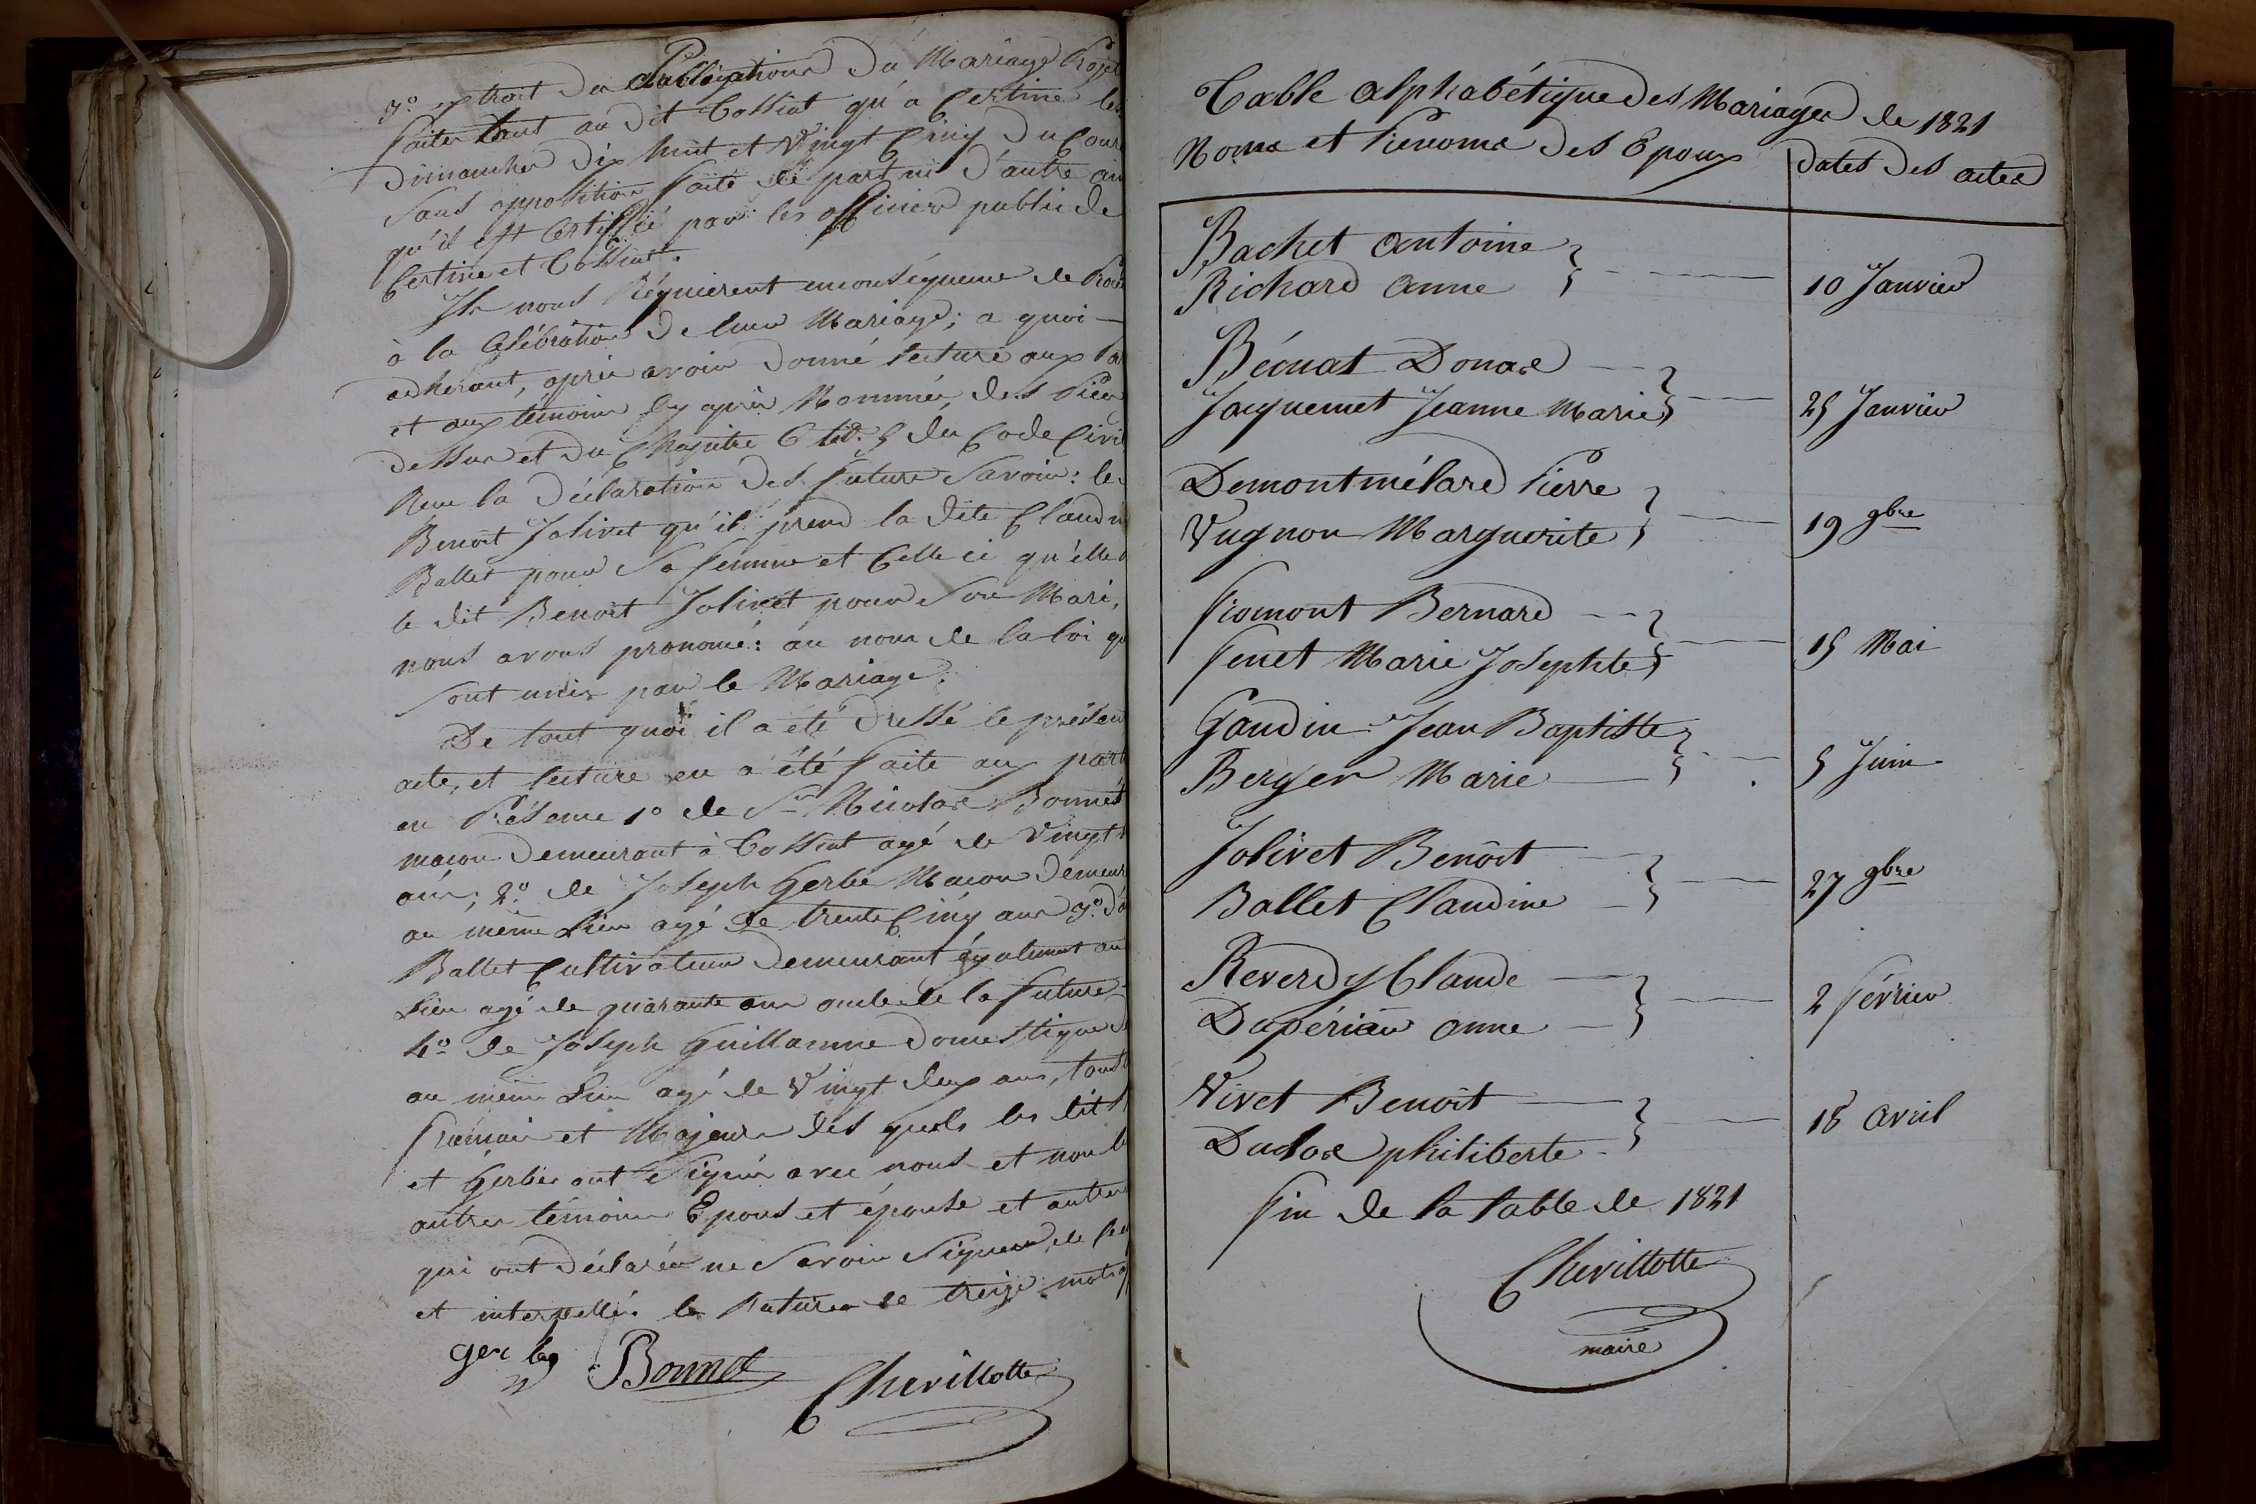 3º extrait des Publications du Mariage Projet
faites tant au dit Cossiat qu'a Certine les
Dimanches Dix huit et Vingt Cinq Du Cour
Sans opposition faite de part ni d'autre ain
qu'il est Certifié par les officiers public de
Certine et Cossiat.
Ils nous Réquierent en conséquence de Proc
à la Célébration De leur Mariage; a quoi
adherant, après avoir Donné lecture aux Par
et aux témoins Cy après Nommés, des Pièces
dessus et du Chapitre 6 titre 5 du Code Civil
Recu la Déclaration des future Savoir: le
Benoit Jolivet qu'il prend la dite Claudin
Ballet pour Sa femme et Celle ci qu'elle
le dit Benoit Jolivet pour Son Mari,
nous avons prononcé: au nom de la loi qu
Sont unis par le Mariage.
De tout quoi il a été Dressé le présent
acte, et lecture en a été faite aux parti
en Présence 1º de Sr Nicolas Bonnet
macon Demeurant à Cossiat agé de Vingt
ans; 2º de Joseph Gerbe Macon Demeur
au même Lieu agé de trente Cinq ans 3º
Ballet Cultivateur Demeurant également au
Lieu agé de quarante ans oncle de la future
4º de Joseph Guillaume Domestique
au même Lieu agé de Vingt deux ans, tous
français et Majeurs des quels les dits
et Gerbe ont Signés avec nous et non le
autres témoins Epoux et épouse et autres
qui ont Déclarés ne Savoir Signer de Ce
et interpellés la Rature de treize mots
ger be Bonnet
Chevillotte
Table Alphabétique Des Mariages de 1821
Noms et Prenoms Des Epoux Dates Des actes
Bachet Antoine
Richard Anne 10 Janvier
Bécuat Donas
Jacquemet Jeanne Marie 25 Janvier
Demontmélard Pierre
Vugnon Marguerite 19 9bre
Fromont Bernard
Fenet Marie Josephte 15 Mai
Gaudin Jean Baptiste
Berger Marie 5 Juin
Jolivet Benoit
Ballet Claudine 27 9bre
Reverdy Claude
Dupérian Anne 2 février
Vivet Benoit
Duclos philiberte 18 Avril
fin de la table de 1821
Chevillotte
maire